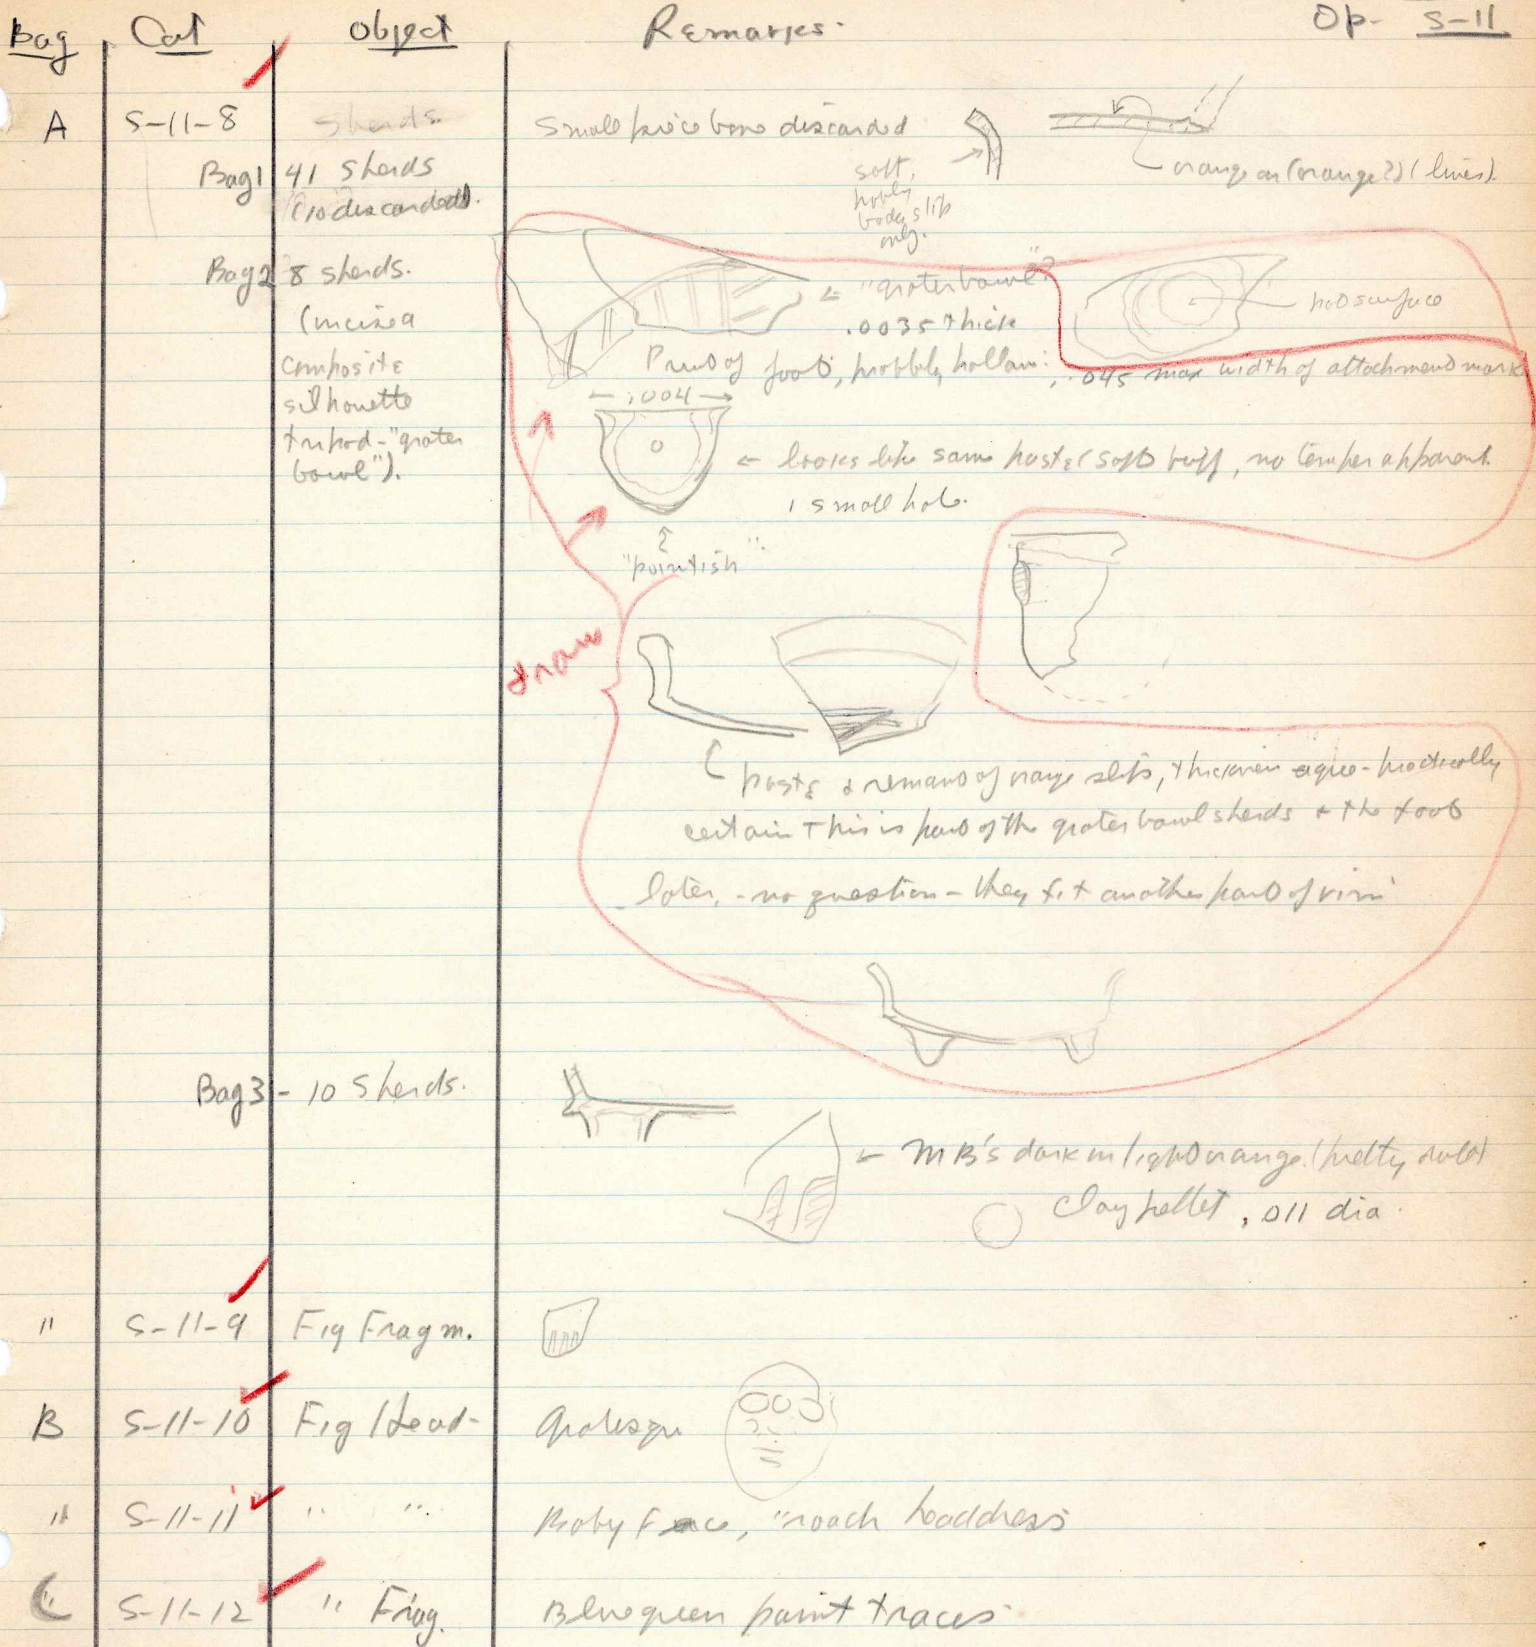 Bag Cat Object Remarks. Op- S-11
A S-11-8 Sherds. Small piece bone discarded
orange on (orange?) (lines).
Bag 1 41 Sherds
(10 discarded).
soft,
body slip
only.
Bag 2 8 sherds. ← "grater bowl"?
(incised .0035 thick
composite
silhouette
tripod-"grater
bowl").
surface
Proof of foot, probably hollow: .045 max width of attachment mark
← .004 →
← looks like same paste (soft buff, no temper apparent.
1 small hole.
"pointish".
draw
paste & remains of orange slip, thickness agree - practically
certain this is part of the grater bowl sherds & the foot
later, - no question - they fit another part of rim
Bag 3 - 10 Sherds.
← MB's dark on light orange.
Clay pellet, .011 dia.
" S-11-9 Fig Fragm.
B S-11-10 Fig Head- Grotesque
" S-11-11 " " Baby Face, "roach headdress
C S-11-12 " Frag. Bluegreen paint traces